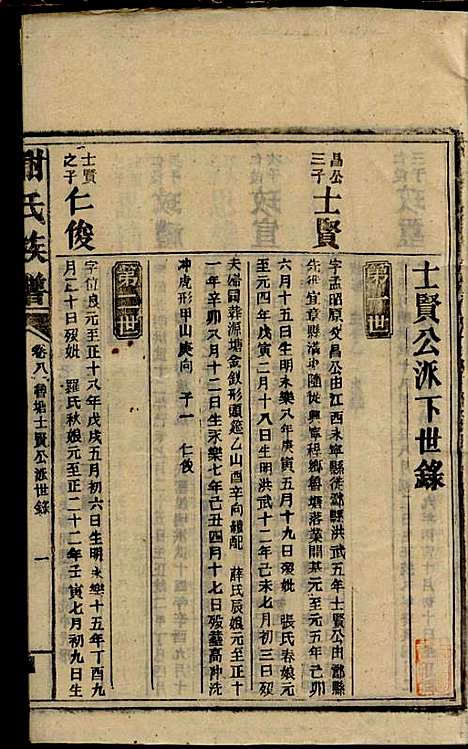 士賢公派下世錄
第一世
昌公三子
士賢
字孟昭原文昌公由江西永寧縣徙酃縣洪武五年士賢公由酃縣
先徙宜章縣滿地隨從興寧程鄉魯塘落業開基元至元五年己卯
六月十五日生明永樂八年庚寅五月十九日歿妣 張氏春娘元
至元四年戊寅二月十八日生明洪武十二年己未七月初三日歿
夫婦同葬源塘金釵形頭艦乙山酉辛向續配 薛氏辰娘元至正十
一年辛卯八月十二日生永樂七年己丑四月十七日歿墓高沖洗
沖虎形甲山庚向 子一 仁俊
第二世
士賢之子
仁俊
字位良元至正十八年戊戌五月初六日生明永樂十五年丁酉九
月二十日歿妣 羅氏秋娘元至正二十二年壬寅七月初九日生
謝氏族譜
卷八
魯塘士賢公派世錄
一